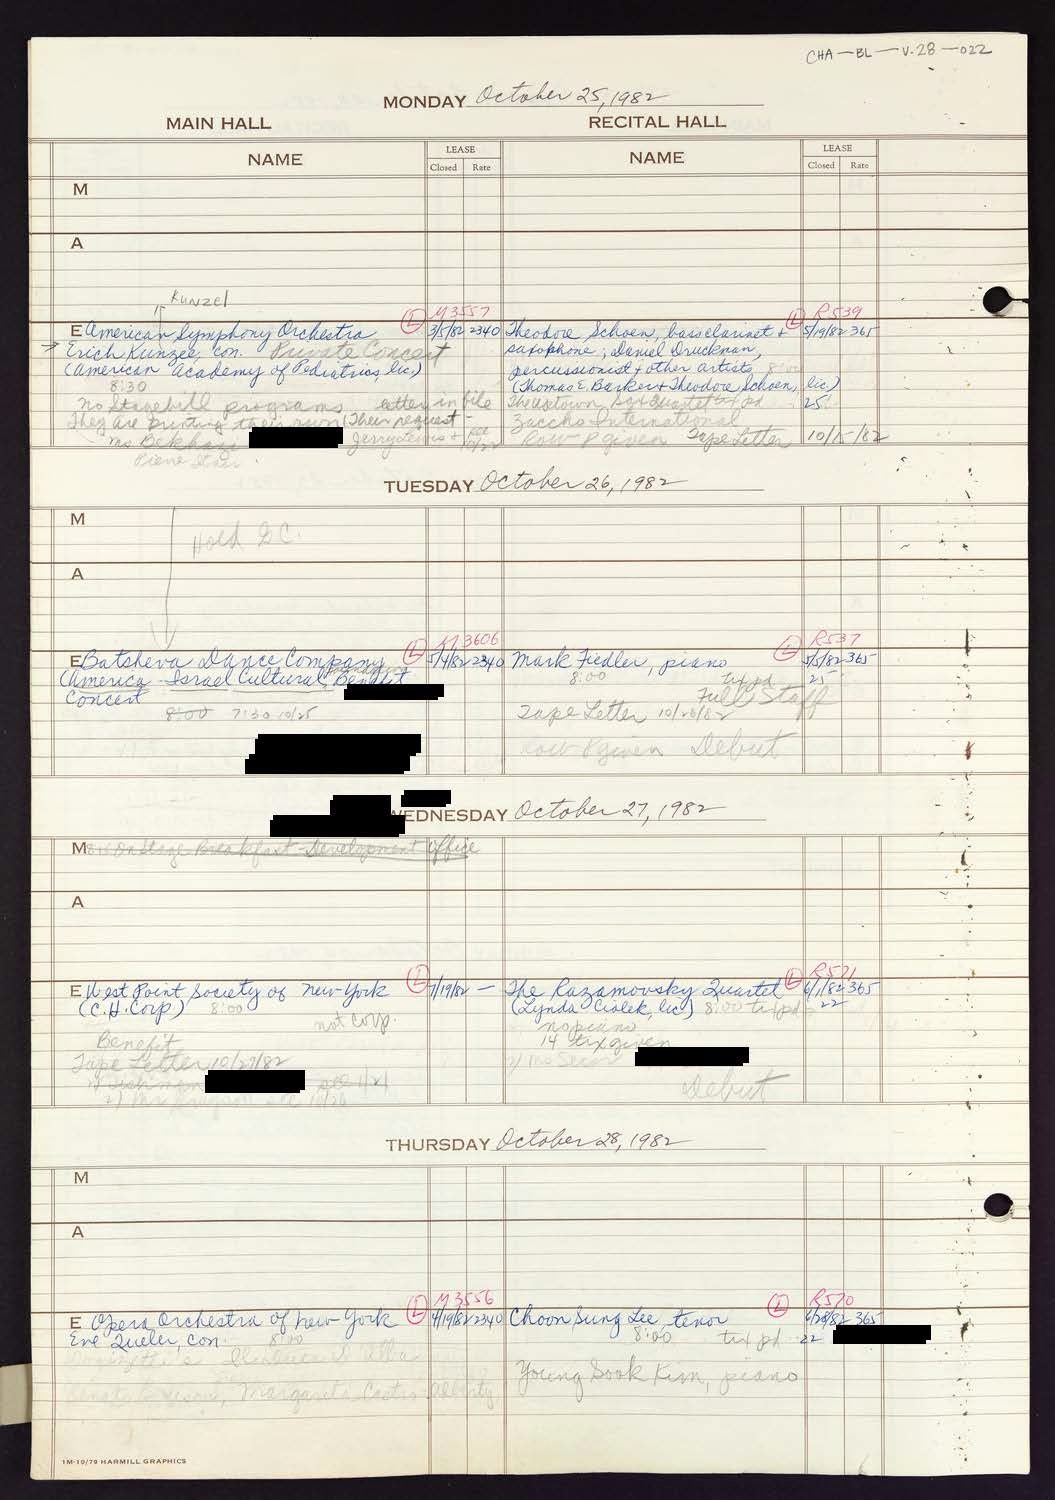 CHA-BL-V.28-022
MONDAY October 25, 1982
MAIN HALL
RECITAL HALL
NAME
LEASE
Closed Rate
NAME
LEASE
Closed Rate
M
A
Kunzel
E American Symphony Orchestra
(L) M3557
3/5/82 2340
Erich Kunzel, con. Private Concert
(American Academy of Pediatrics, lic.)
8:30
no Stagebill programs letter in file
They are printing their own (Their request
Theodore Schoen, bass clarinet +
(L) R539
5/19/82 365
saxophone; Daniel Druckman,
percussionist + other artists 8:00
(Thomas E. Barker + Theodore Schoen, lic)
The Uptown Sax Quartet tix pd 25
International
Row P given Tape Letter 10/15/82
TUESDAY October 26, 1982
M
Hold
A
E Batsheva Dance Company
(L) M3606
5/4/82 2340
America-Israel Cultural Foundation Benefit
Concert
8:00 7:30 10/25
Mark Fiedler, piano
(L) R537
5/5/82 365
8:00 tix pd 25
Full Staff
Tape Letter
Row P given Debut
WEDNESDAY October 27, 1982
M On Stage Breakfast-Development Office
A
E West Point Society of New York
(L)
7/19/82 —
(C.H. Corp) 8:00
not corp.
Benefit
Tape Letter 10/27/82
The Razamovsky Quartet
(L) R571
6/1/82 365
(Lynda Ciolek, lic) 8:00 tix pd 22
no piano
14 tix given
Debut
THURSDAY October 28, 1982
M
A
E Opera Orchestra of New York
(L) M3556
4/19/82 2340
Eve Queler, con. 8:00
Choon Sung Lee, tenor
(L) R570
6/28/82 365
8:00 tix pd 22
Young Sook Kim, piano
1M-10/79 HARMILL GRAPHICS